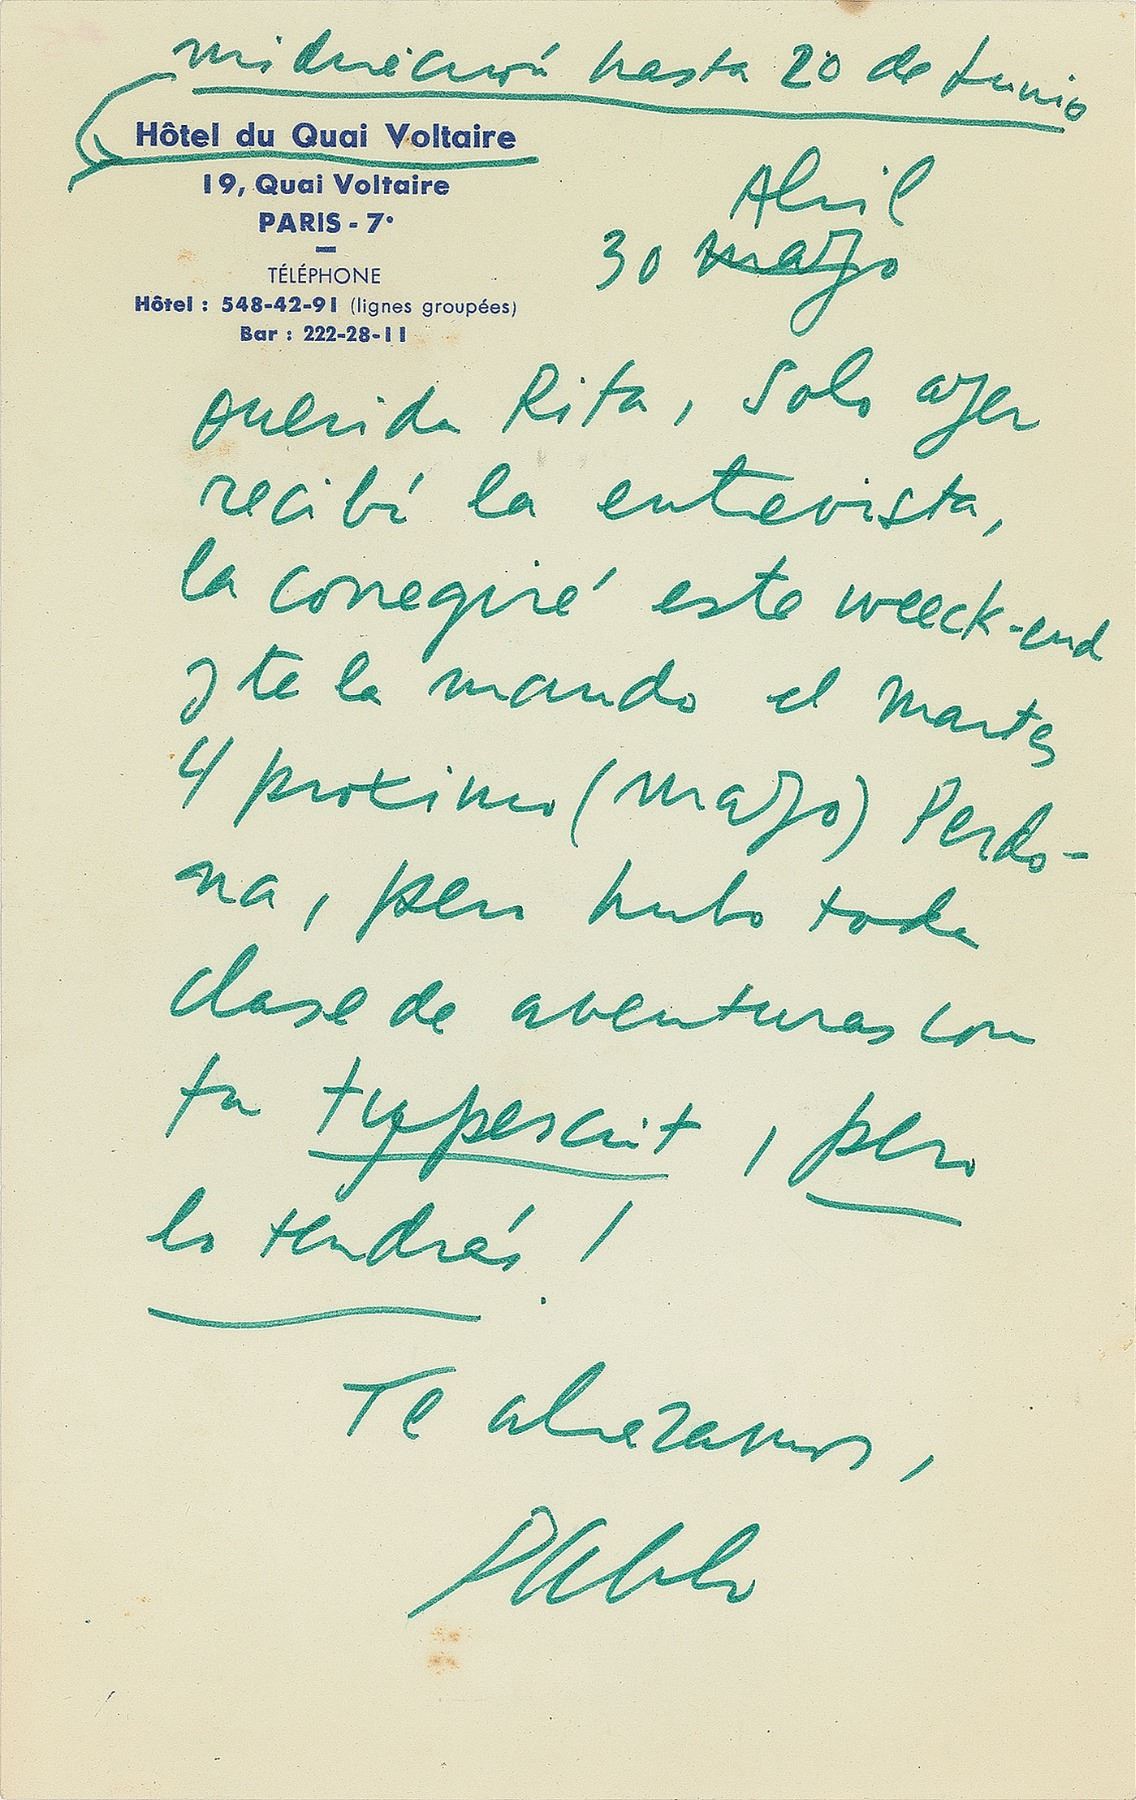 mi dirección hasta 20 de Junio
Hôtel du Quai Voltaire
19, Quai Voltaire
PARIS - 7e
TÉLÉPHONE
Hôtel : 548-42-91 (lignes groupées)
Bar : 222-28-11
Abril
30 mayo
Querida Rita, Solo ayer
recibí la entrevista,
la corregiré este weeck-end
y te la mando el Martes
4 proximo (mayo) Perdo-
na, pero hubo toda
clase de aventuras con
tu typescrit, pero
lo tendrás!
Te abrazamos,
Pablo